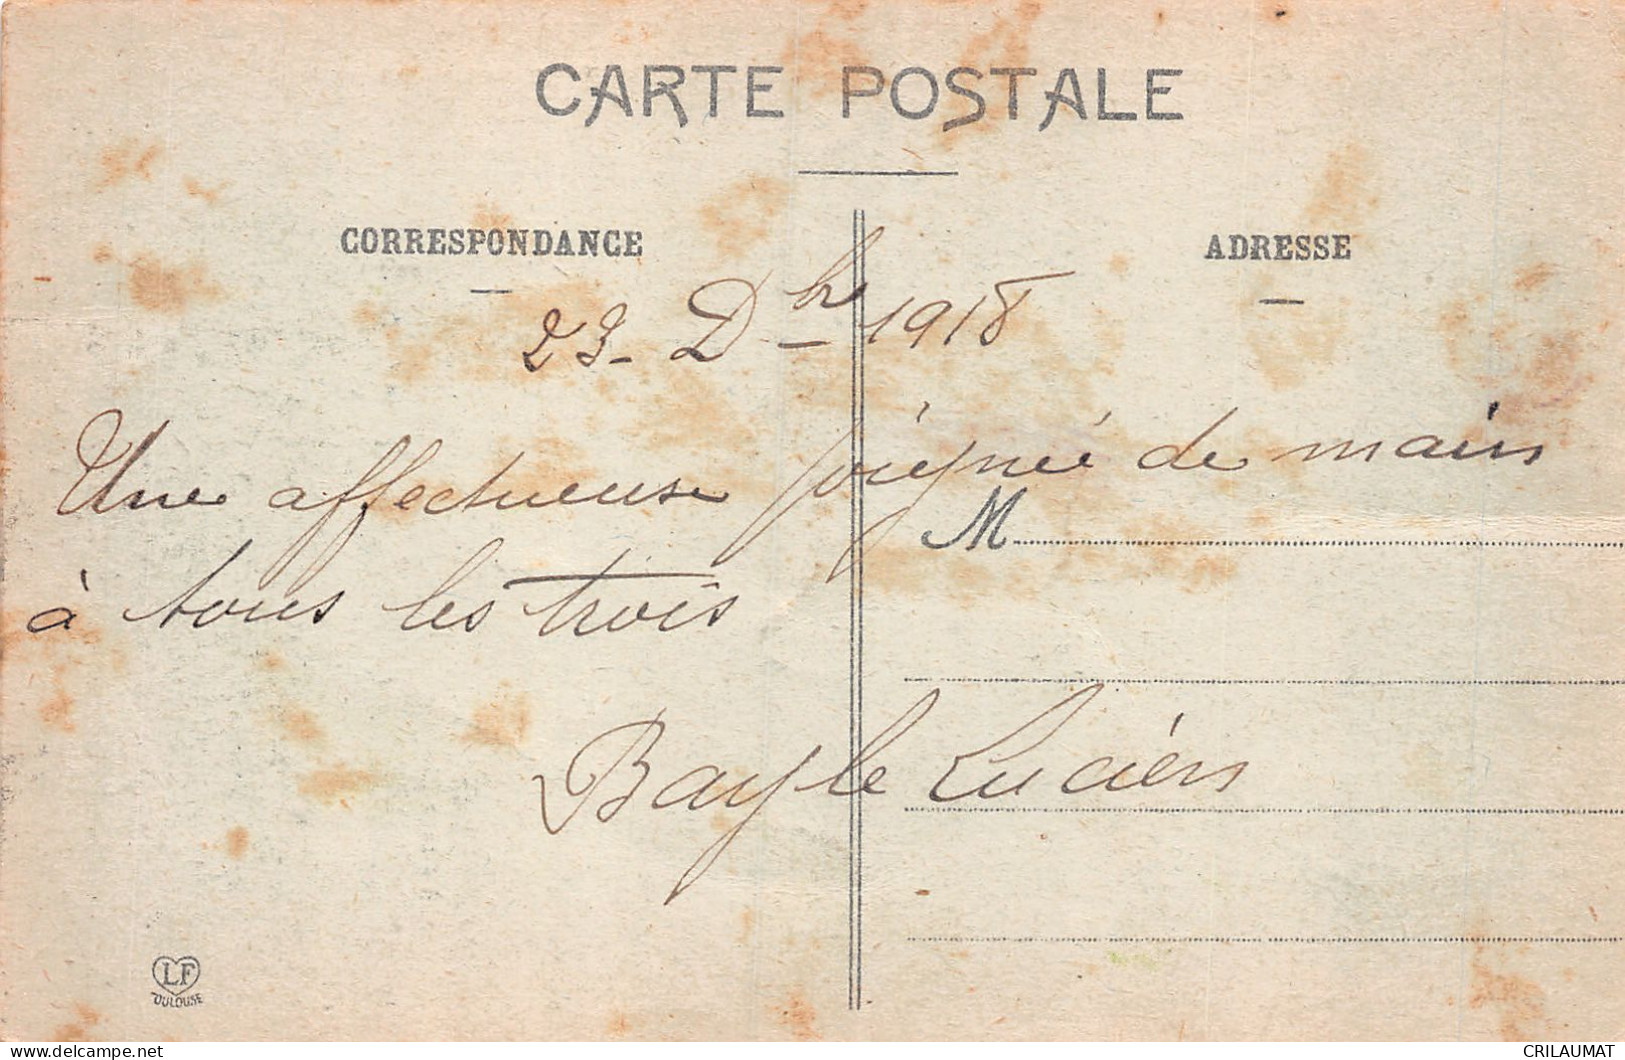 CARTE POSTALE
CORRESPONDANCE
ADRESSE
23 - Dbr - 1918
Une affectueuse poignée de mains
M
à tous les trois
Bayle Lucien
LF
TOULOUSE
delcampe.net
CRILAUMAT